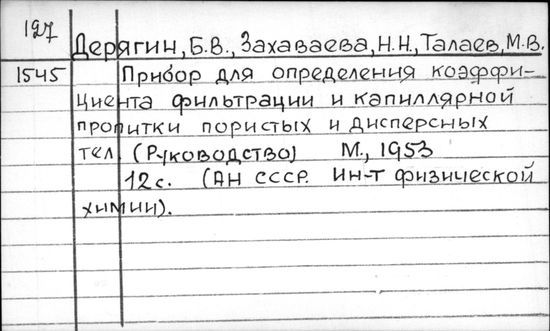 127
Дерягин, Б.В., Захаваева, Н.Н., Талаев, М.В.
1545 Прибор для определения коэффи-
циента фильтрации и капиллярной
пропитки пористых и дисперсных
тел (Руководство) М., 1953
12 с. (АН СССР. Ин-т физической
химии).